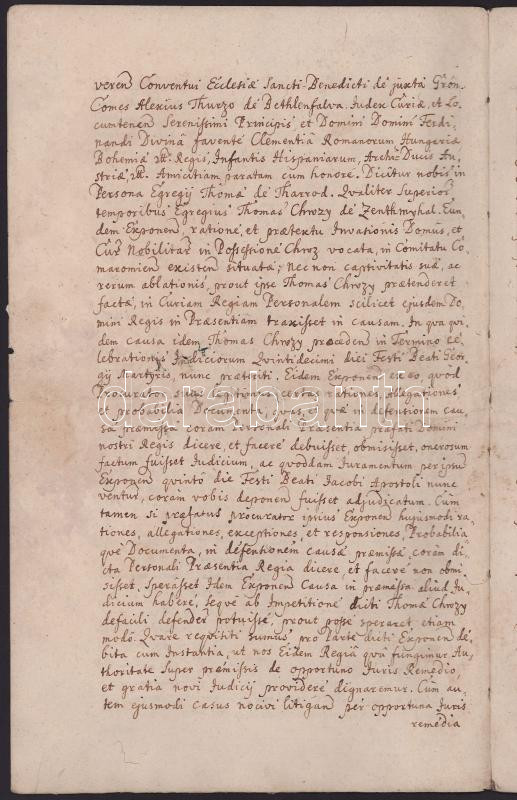 veren Conventui Ecclesiæ Sancti Benedicti de juxta Gron.
Comes Alexius Thurzo de Bethlenfalva. Iudex Curiæ, et Lo-
cumtenen Serenissimi Principis et Domini Domini Ferdi-
nandi Divinâ favente Clementiâ Romanorum Hungariæ
Bohemiæ Regis, Infantis Hispaniarum, Archi-Ducis Au-
striæ Amicitiam paratam cum honore. Dicitur nobis in
Persona Egregij Thomæ de Tharrod. Qvaliter Superior
temporibus Egregius Thomas Chrozy de Zenthmyhal. Eun-
dem Exponen, ratione, et prætextu Invationis Domus, et
Curi Nobilitar in Possessione Chroz vocata, in Comitatu Co-
maromien existen situatæ; Nec non captivitatis suæ, ac
rerum ablationis, prout ipse Thomas Chrozy prætenderet
factæ, in Curiam Regiam Personalem scilicet ejusdem Do-
mini Regis in Præsentiam traxisset in causam. In qva qvi-
dem causa idem Thomas Chrozy præceden in Termino ce-
lebrationis Iudiciorum Qvintidecimi diei Festi Beati Geor-
gij Martyris, nunc præteriti. Eidem Exponen eo, qvod
Procurator suus qvasdam certas rationes, Allegationes
et probabilia Documenta, qvas, et qvæ in defensionem cau-
sæ præmissæ coram Personali Præsentia præfati Domini
nostri Regis dicere, et facere debuisset, obmisisset, onerosum
factum fuisset Judicium, ac qvoddam Iuramentum per ipsum
Exponen qvinto die Festi Beati Iacobi Apostoli nunc
ventur, coram vobis deponen fuisset adjudicatum. Cum
tamen si præfatus procurator ipsius Exponen hujusmodi ra-
tiones, allegationes, exceptiones, et responsiones, Probabilia
qve Documenta, in defensionem causæ præmissæ, coram di-
cta Personali Præsentia Regia dicere, et facere non obmi-
sisset, Sperasset Idem Exponen Causa in præmissa aliud Iu-
dicium habere, seqve ab Impetitione dicti Thomæ Chrozy
defacili defender potuisse, prout posse speraret, etiam
modo. Qvare reqvisiti sumus pro Parte dicti Exponen de-
bita cum Instantia, ut nos Eidem Regiâ qva fungimur Au-
thoritate Super præmissis de opportuno Iuris Remedio,
et gratia novi Iudicij providere dignaremur. Cum au-
tem ejusmodi casus nocivi litigan per opportuna Iuris
remedia
darabanth